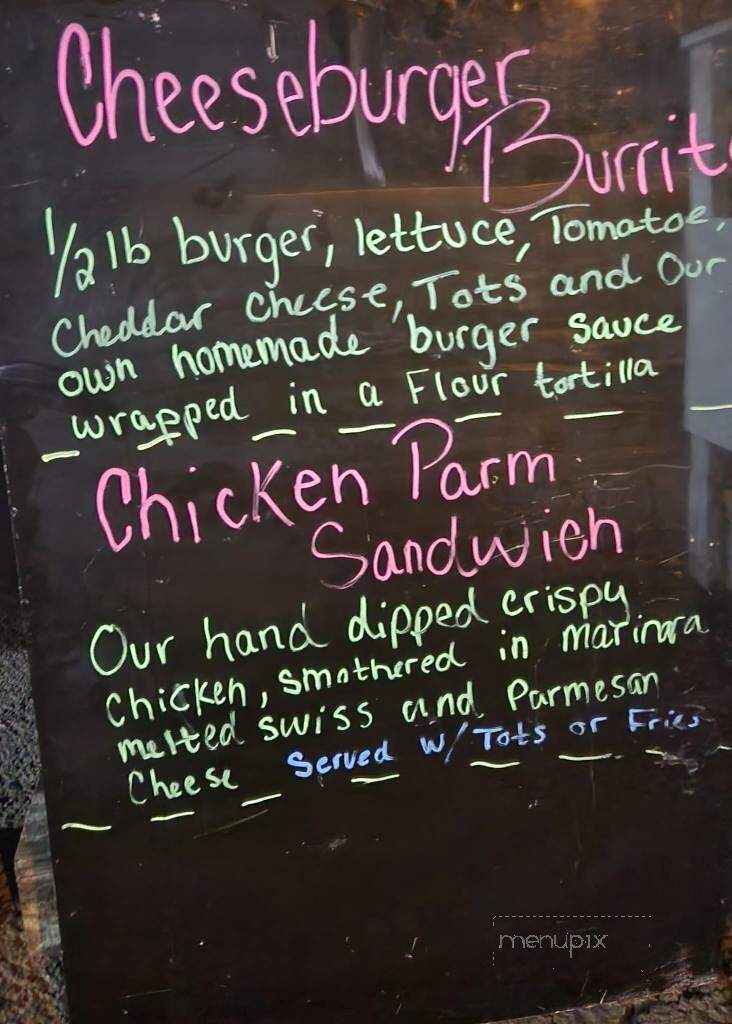 Cheeseburger
Burrito
1/2 lb burger, lettuce, Tomatoe,
Cheddar cheese, Tots and Our
own homemade burger sauce
wrapped in a Flour tortilla
Chicken Parm
Sandwich
Our hand dipped crispy
chicken, smothered in marinara
melted swiss and Parmesan
Cheese Served w/ Tots or Fries
menupix